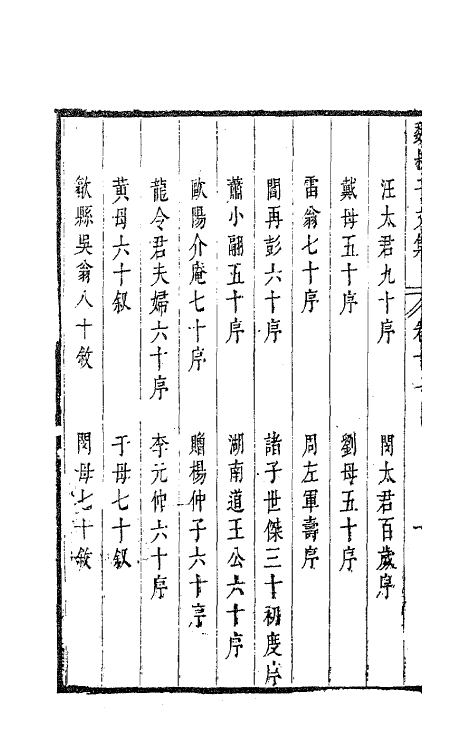 汪太君九十序　閔太君百歲序
戴母五十序　劉母五十序
雷翁七十序　周左軍壽序
閻再彭六十序　諸子世傑三十初度序
蕭小翮五十序　湖南道王公六十序
歐陽介庵七十序　贈楊仲子六十序
龍令君夫婦六十序　李元仲六十序
黄母六十叙　于母七十叙
歙縣吳翁八十敘　閔母七十敘